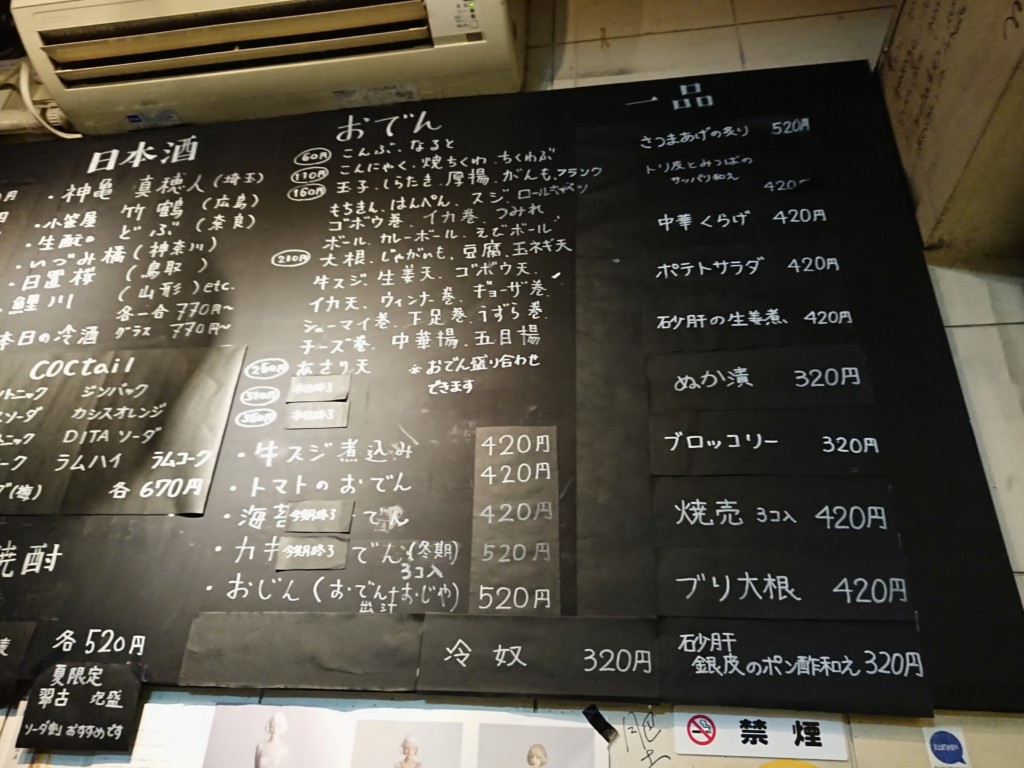 日本酒
・神亀 真穂人 (埼玉)
・小笹屋 竹鶴 (広島)
・生酛の どぶ (奈良)
・いづみ橘 (神奈川)
・日置桜 (鳥取)
鯉川 (山形) etc.
各一合 770円~
本日の冷酒 グラス 770円~
COCtail
ジントニック ジンバック
ソーダ カシスオレンジ
ニック DITA ソーダ
ーク ラムハイ ラムコーク
各 670円
焼酎
各 520円
夏限定
翠古
ソーダ割 おすすめです
おでん
60円 こんぶ、なると
110円 こんにゃく、焼ちくわ、ちくわぶ
160円 玉子、しらたき、厚揚、がんも、フランク
もちきん、はんぺん、スジ、ロールキャベツ
ゴボウ巻、イカ巻、つみれ
ボール、カレーボール、えびボール
210円 大根、じゃがいも、豆腐、玉ネギ天
牛スジ、生姜天、ゴボウ天、
イカ天、ウィンナー巻、ギョーザ巻
シューマイ巻、下足巻、うずら巻
チーズ巻、中華揚、五目揚
260円 あさり天
※おでん盛り合わせ
できます
本日終了
360円 本日終了
・牛スジ煮込み 420円
・トマトのおでん 420円
・海苔 今期終了 でん 420円
・カキ 今期終了 でん (冬期) 520円
3コ入
・おじん (おでん出汁+おじや) 520円
冷奴 320円
一品
さつまあげの炙り 520円
トリ皮とみつばの
サッパリ和え 420-
中華くらげ 420円
ポテトサラダ 420円
砂肝の生姜煮、 420円
ぬか漬 320円
ブロッコリー 320円
焼売 3コ入 420円
ブリ大根 420円
砂肝
銀皮のポン酢和え 320円
禁煙